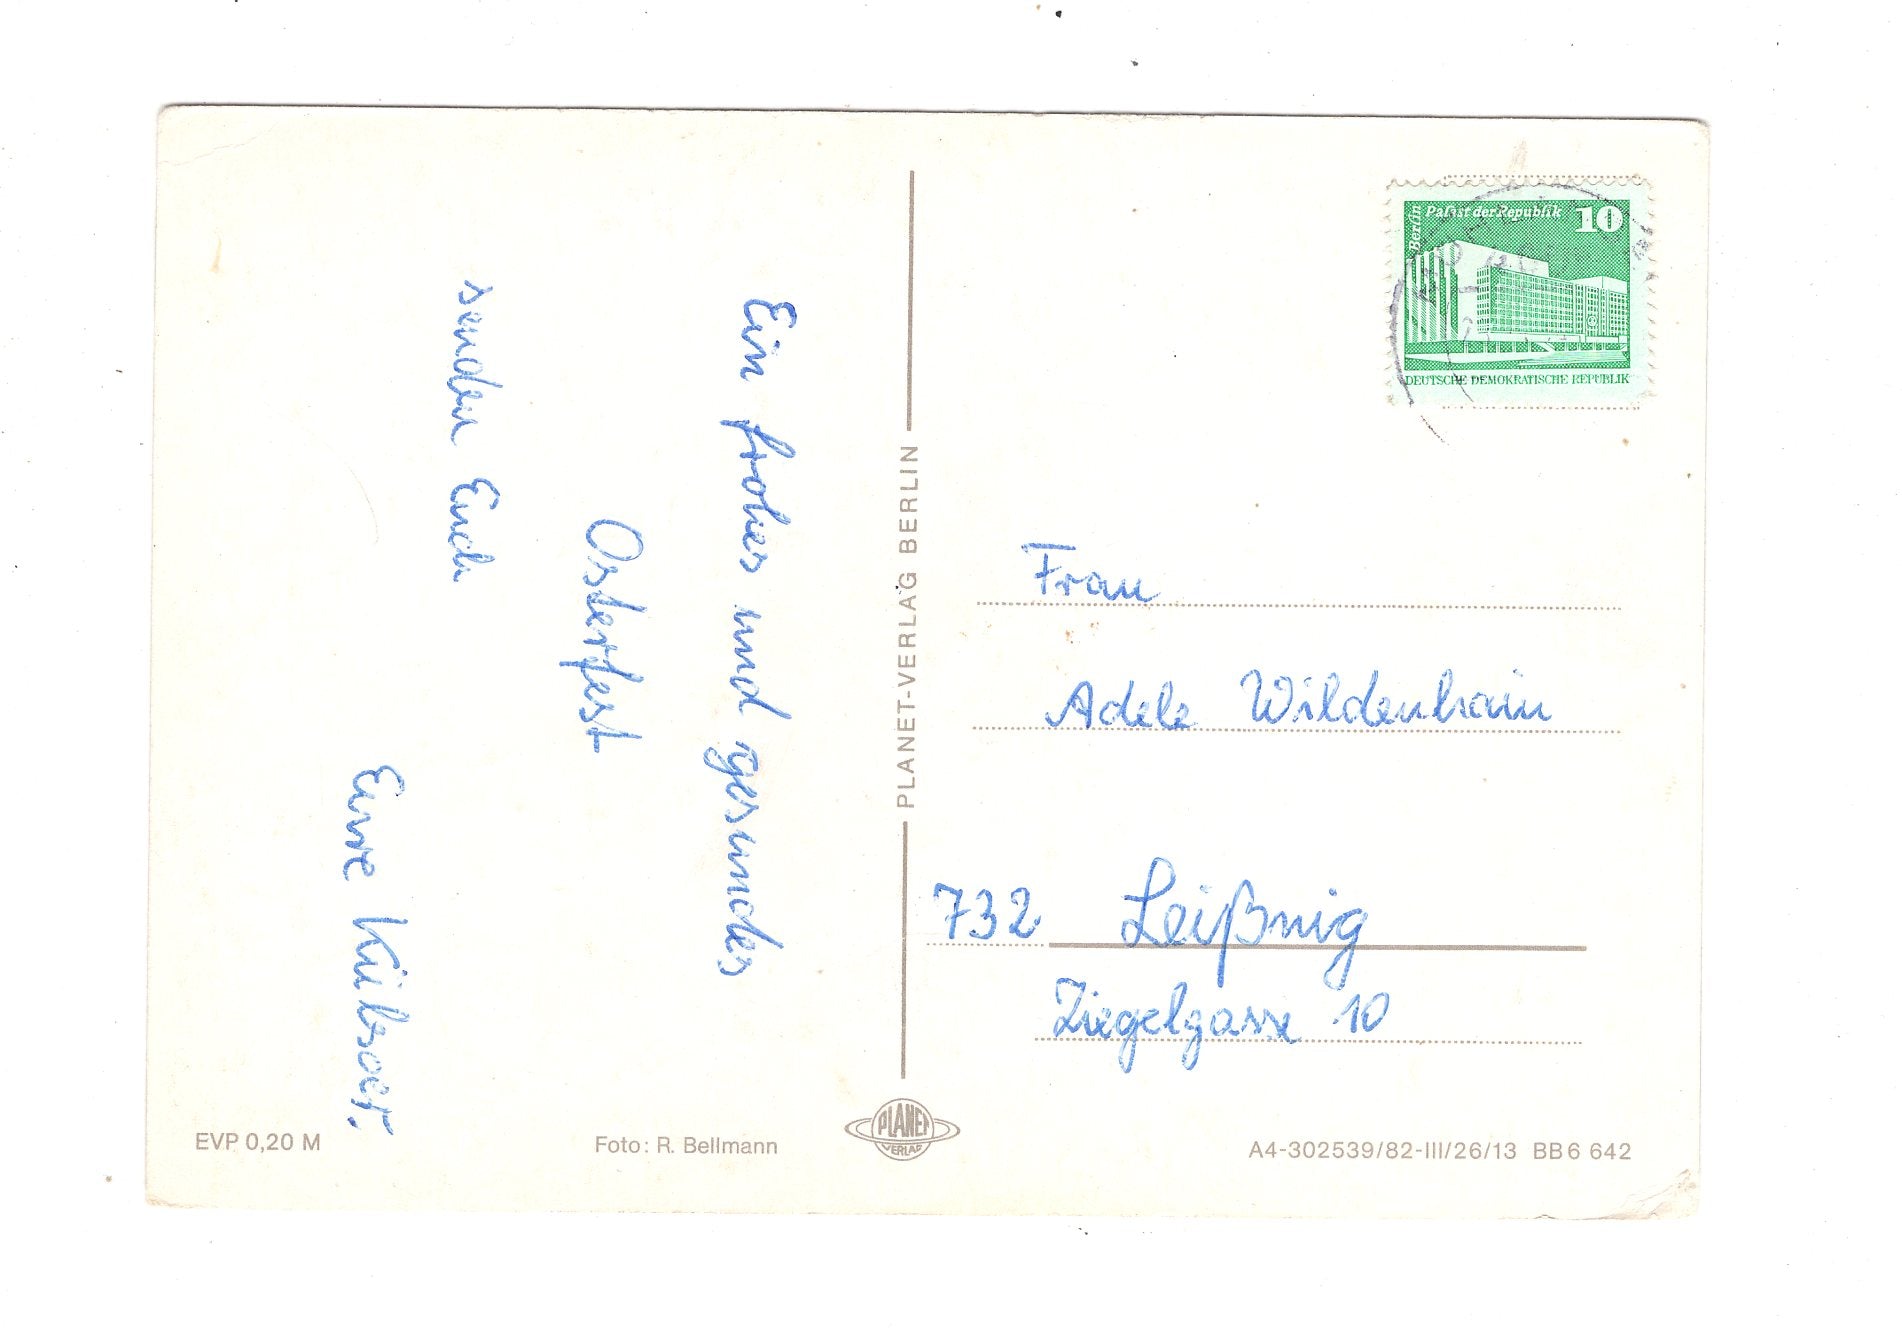 Ein frohes und gesundes
Osterfest
senden Euch
Eure
PLANET-VERLAG BERLIN
EVP 0,20 M
Foto: R. Bellmann
PLANET
VERLAG
Berlin
Palast der Republik
10
DEUTSCHE DEMOKRATISCHE REPUBLIK
Frau
Adele Wildenhain
732 Leißnig
Ziegelgasse 10
A4-302539/82-III/26/13 BB 6 642